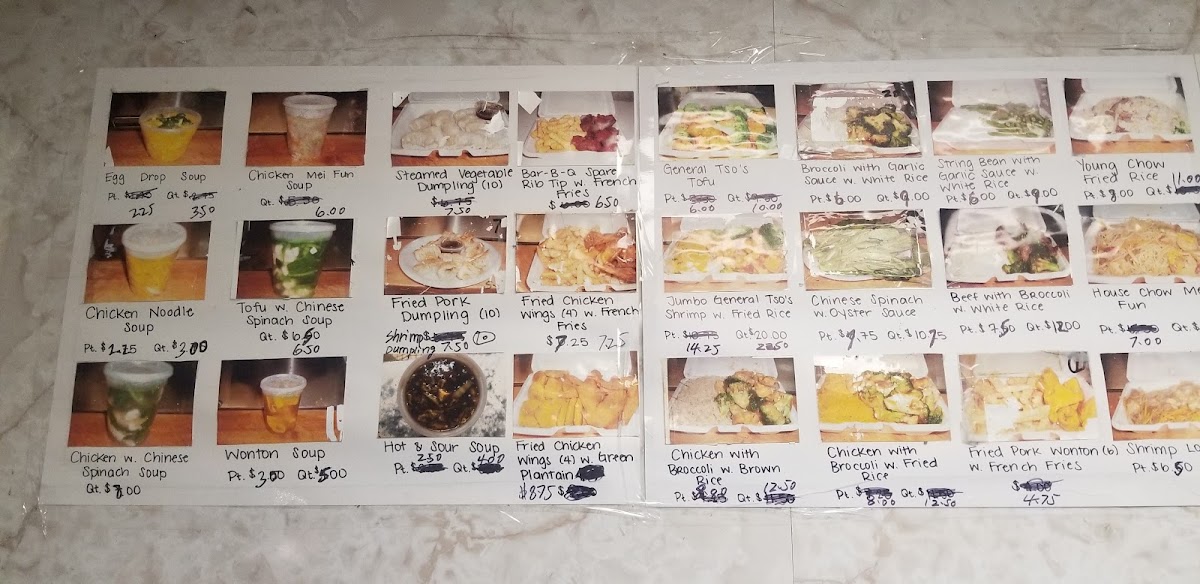 Egg Drop Soup
Pt. Qt.
2.25 3.50
Chicken Mei Fun
Soup
Qt.
6.00
Steamed Vegetable
Dumpling (10)
$6.75
7.50
Bar-B-Q Spare
Rib Tip w. French
Fries
$ 6.50
General Tso's
Tofu
Pt. Qt.
6.00 10.00
Broccoli with Garlic
Sauce w. White Rice
Pt. $6.00 Qt. $9.00
String Bean with
Garlic Sauce w.
White Rice
Pt. $6.00 Qt. $9.00
Young Chow
Fried Rice
11.00
Pt. $8.00 Qt. $
Chicken Noodle
Soup
Pt. $2.25 Qt. $3.00
Tofu w. Chinese
Spinach Soup
Qt. $6.50
6.50
Fried Pork
Dumpling (10)
Shrimp $ 10
Dumpling 7.50
Fried Chicken
Wings (4) w. French
Fries
$7.25 7.25
Jumbo General Tso's
Shrimp w. Fried Rice
Pt. Qt. $20.00
14.25
Chinese Spinach
w. Oyster Sauce
Pt. $7.75 Qt. $10.75
Beef with Broccoli
w. White Rice
Pt. $7.50 Qt. $12.00
House Chow Me
Fun
Pt. Qt. $
7.00
Chicken w. Chinese
Spinach Soup
Qt. $7.00
Wonton Soup
Pt. $3.00 Qt. $5.00
Hot & Sour Soup
2.50 4.00
Pt. $ Qt. $
Fried Chicken
Wings (4) w. Green
Plantain
$8.75 $
Chicken with
Broccoli w. Brown
Rice
12.50
Pt. $ Qt. $
Chicken with
Broccoli w. Fried
Rice
Pt. $ Qt.
8.00 12.50
Fried Pork Wonton (6)
w. French Fries
$4.00
4.75
Shrimp Lo
Pt. $6.50